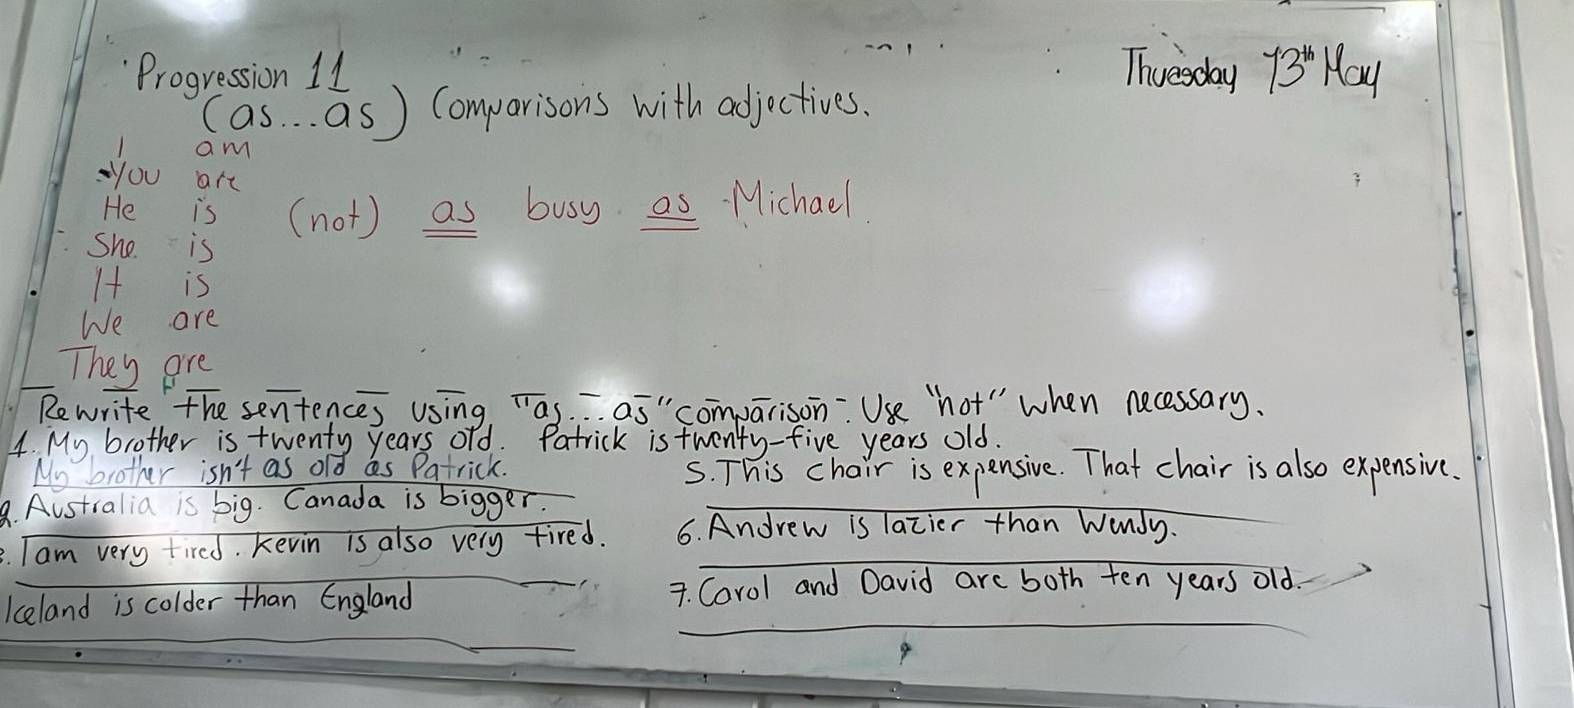 Progression 11
Thuesday 13th May
(as...as) Comparisons with adjectives.
I am
You are
He is
She is
It is
We are
They are
(not) as busy as Michael.
Rewrite the sentences using "as...as" comparison. Use "not" when necessary.
1. My brother is twenty years old. Patrick is twenty-five years old.
My brother isn't as old as Patrick.
2. Australia is big. Canada is bigger.
3. I am very tired. Kevin is also very tired.
Iceland is colder than England
5. This chair is expensive. That chair is also expensive.
6. Andrew is lazier than Wendy.
7. Carol and David are both ten years old.